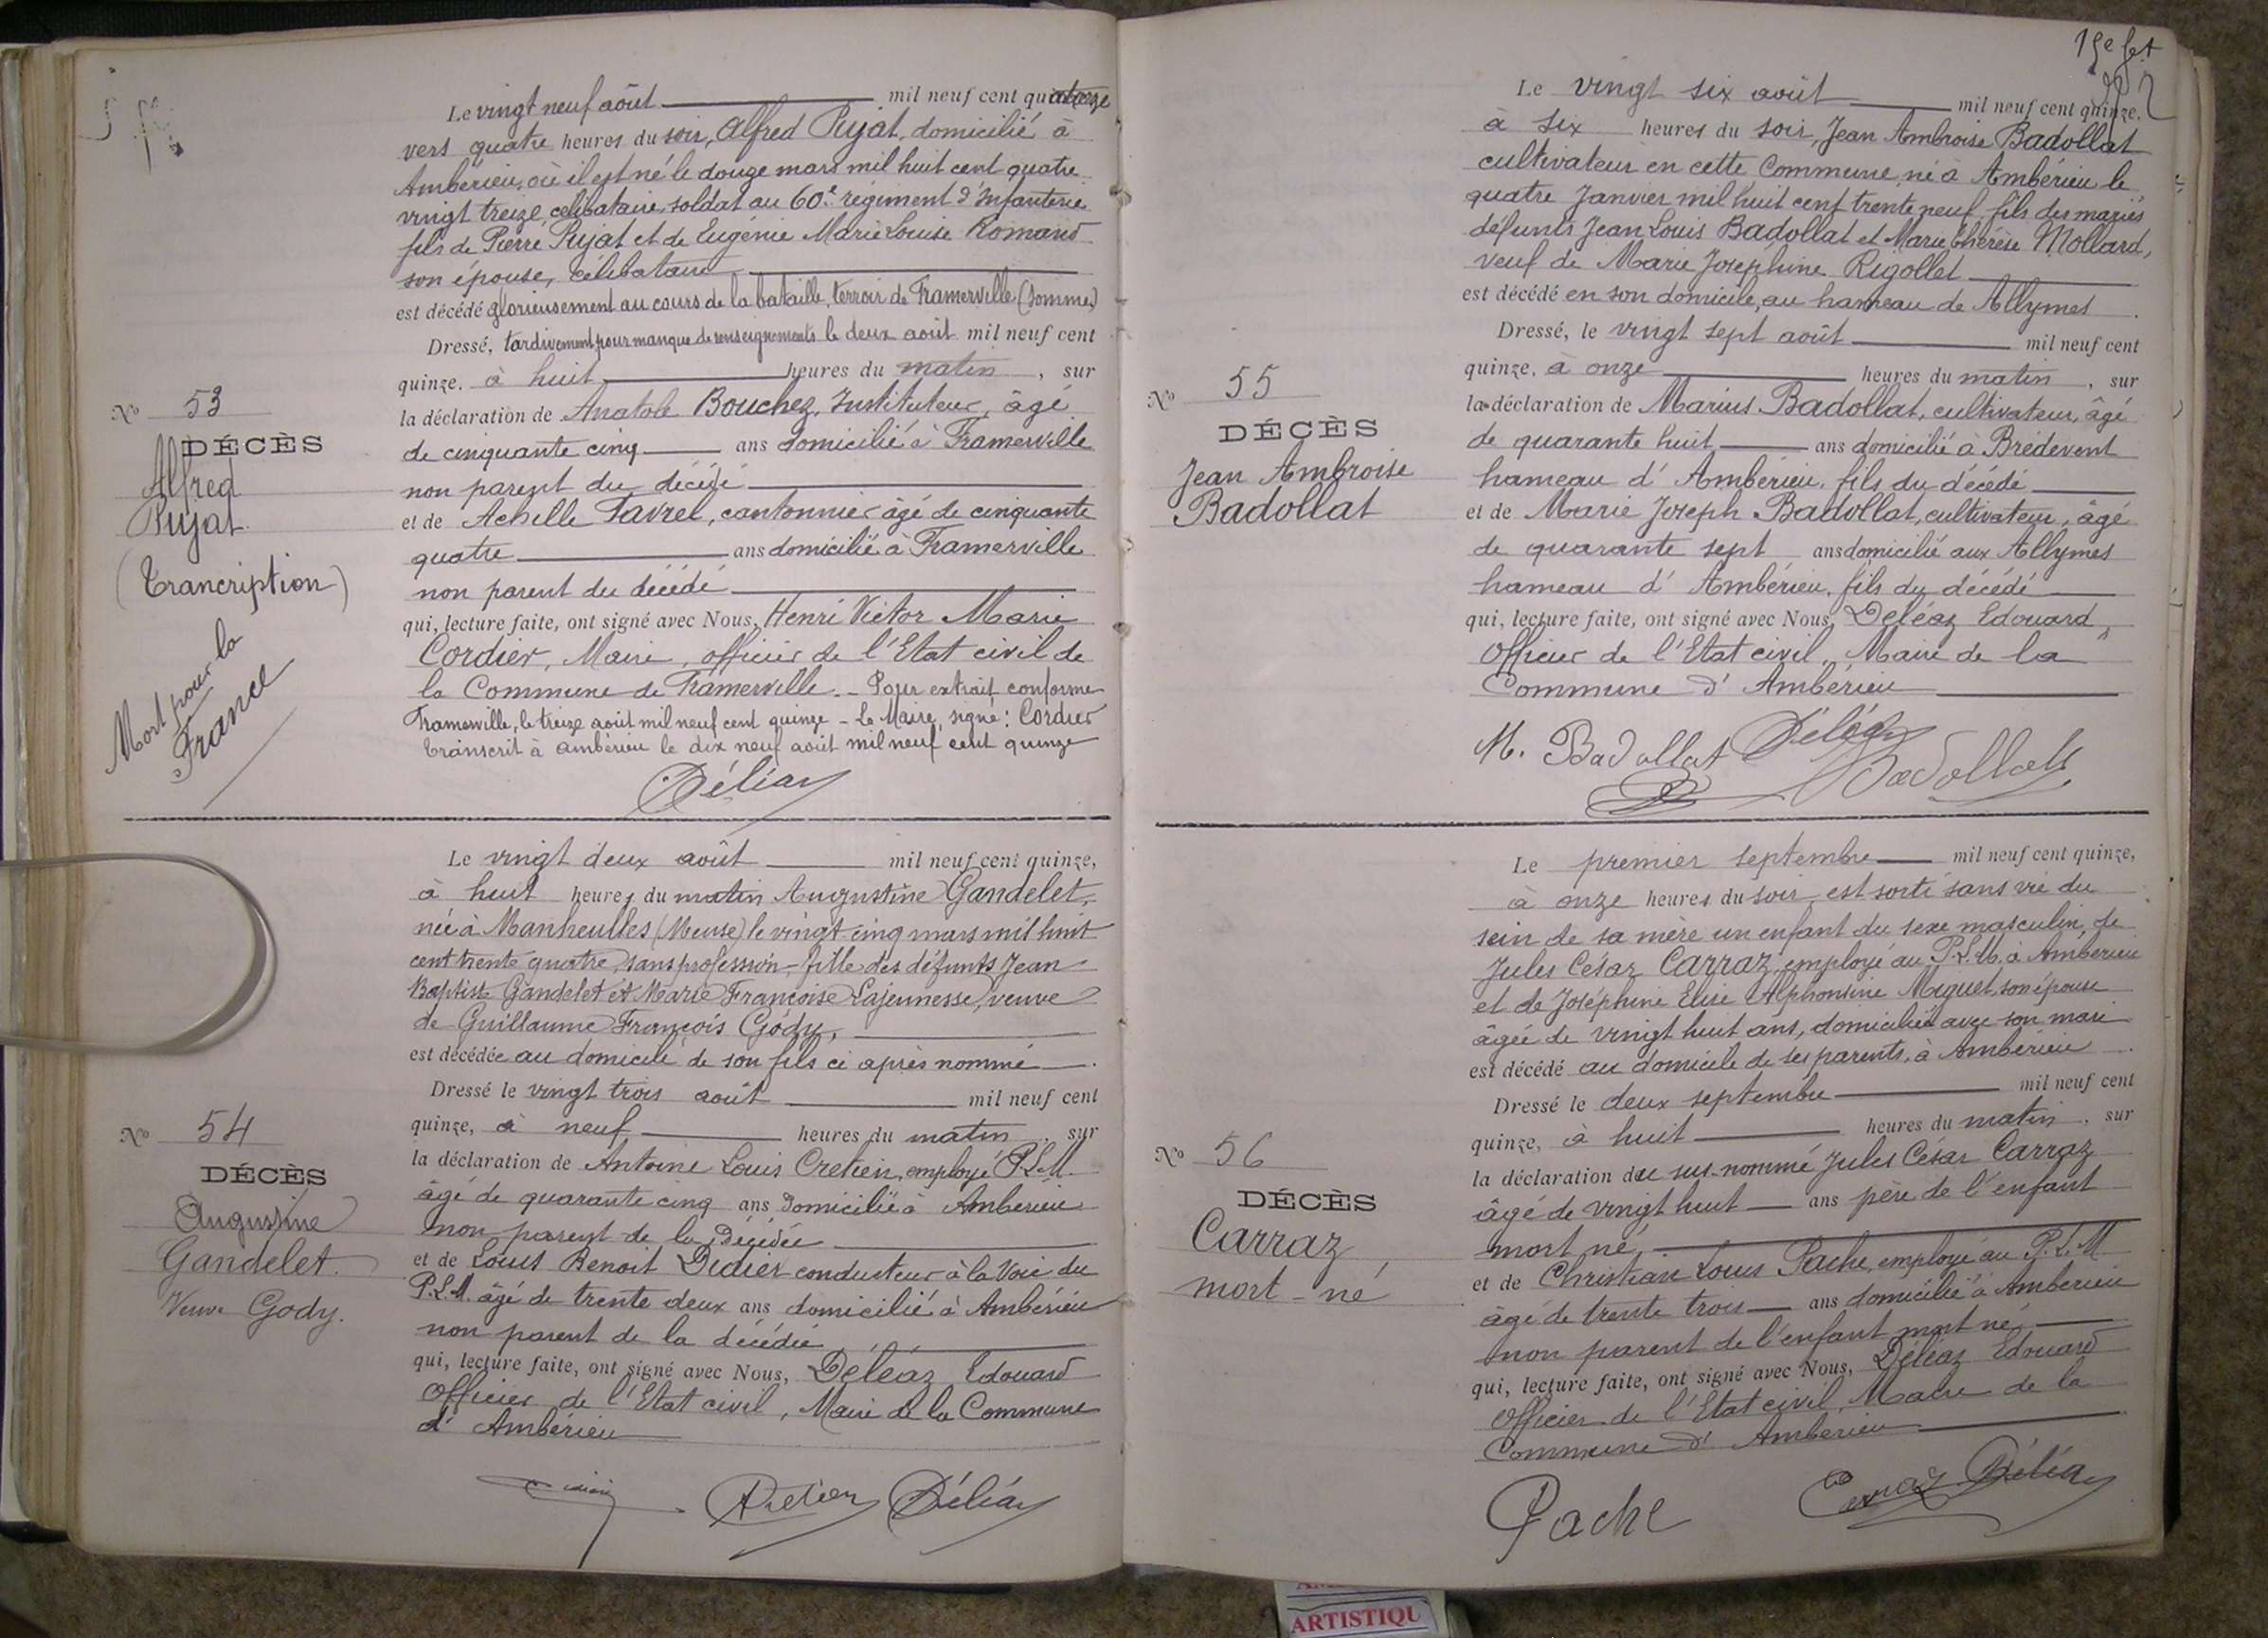 Le vingt neuf août mil neuf cent quatorze
vers quatre heures du soir, Alfred Pujat, domicilié à
Ambérieu, où il est né le douze mars mil huit cent quatre
vingt treize, célibataire, soldat au 60e régiment d'Infanterie
fils de Pierre Pujat et de Eugénie Marie Louise Romand
son épouse, célibataire
est décédé glorieusement au cours de la bataille, terroir de Framerville (Somme)
Dressé, tardivement pour manque de renseignements le deux août mil neuf cent
quinze, à huit heures du matin, sur
la déclaration de Anatole Bouchez, Instituteur, âgé
de cinquante cinq ans domicilié à Framerville
non parent du décédé
et de Achille Favrel, cantonnier âgé de cinquante
quatre ans domicilié à Framerville
non parent du décédé
qui, lecture faite, ont signé avec Nous, Henri Victor Marie
Cordier, Maire, officier de l'Etat civil de
la Commune de Framerville. - Pour extrait conforme
Framerville, le treize août mil neuf cent quinze - Le Maire, signé : Cordier
Transcrit à Ambérieu le dix neuf août mil neuf cent quinze
Déléaz
No 53
DÉCÈS
Alfred
Pujat
(Trancription)
Mort pour la
France
Le vingt deux août mil neuf cent quinze,
à huit heures du matin Augustine Gandelet,
née à Manheulles (Meuse) le vingt cinq mars mil huit
cent trente quatre, sans profession, fille des défunts Jean
Baptiste Gandelet et Marie Françoise Lajeunesse, veuve
de Guillaume François Gody,
est décédée au domicile de son fils ci après nommé.
Dressé le vingt trois août mil neuf cent
quinze, à neuf heures du matin, sur
la déclaration de Antoine Louis Cretien, employé P.L.M.
âgé de quarante cinq ans domicilié à Ambérieu
non parent de la décédée
et de Louis Benoit Didier conducteur à la Voie du
P.L.M. âgé de trente deux ans domicilié à Ambérieu
non parent de la décédée
qui, lecture faite, ont signé avec Nous, Déléaz Edouard
Officier de l'Etat civil, Maire de la Commune
d'Ambérieu
Déléaz
No 54
DÉCÈS
Augustine
Gandelet
Veuve Gody.
Le vingt six août mil neuf cent quinze,
à six heures du soir, Jean Ambroise Badollat
cultivateur en cette Commune, né à Ambérieu le
quatre Janvier mil huit cent trente neuf, fils des mariés
défunts Jean Louis Badollat et Marie Thérèse Mollard,
veuf de Marie Josephine Rigollet
est décédé en son domicile, au hameau de Allymes.
Dressé, le vingt sept août mil neuf cent
quinze, à onze heures du matin, sur
la déclaration de Marius Badollat, cultivateur, âgé
de quarante huit ans domicilié à Brédevent
hameau d'Ambérieu, fils du décédé
et de Marie Joseph Badollat, cultivateur, âgé
de quarante sept ans domicilié aux Allymes
hameau d'Ambérieu, fils du décédé
qui, lecture faite, ont signé avec Nous, Déléaz Edouard,
Officier de l'Etat civil, Maire de la
Commune d'Ambérieu
M. Badollat Déléaz
Badollat
No 55
DÉCÈS
Jean Ambroise
Badollat
Le premier septembre mil neuf cent quinze,
à onze heures du soir est sorti sans vie du
sein de sa mère un enfant du sexe masculin, de
Jules César Carraz, employé au P.L.M. à Ambérieu
et de Joséphine Elise Alphonsine Miguet, son épouse
âgée de vingt huit ans, domiciliée avec son mari
est décédé au domicile de ses parents, à Ambérieu.
Dressé le deux septembre mil neuf cent
quinze, à huit heures du matin, sur
la déclaration du sus-nommé Jules César Carraz
âgé de vingt huit ans père de l'enfant
mort né,
et de Christian Louis Pache, employé au P.L.M
âgé de trente trois ans domicilié à Ambérieu
non parent de l'enfant mort né,
qui, lecture faite, ont signé avec Nous, Déléaz Edouard
Officier de l'Etat civil, Maire de la
Commune d'Ambérieu
Pache Carraz Déléaz
No 56
DÉCÈS
Carraz
mort-né
ARTISTIQU